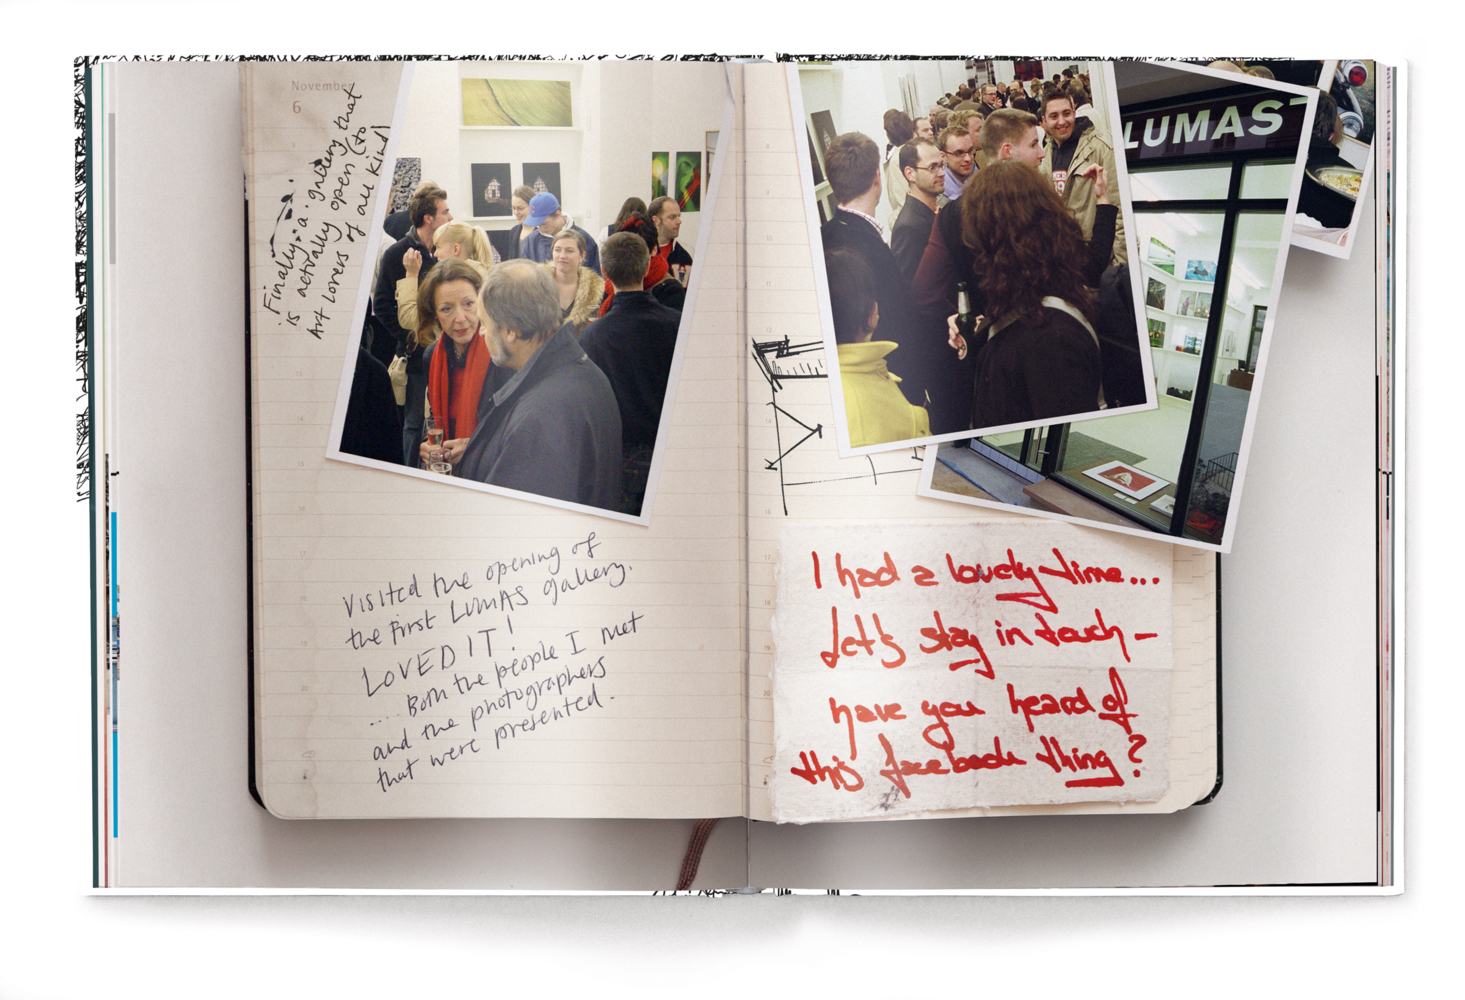 November
6
Finally, a gallery that
is actually open to
Art lovers of all kind!
LUMAS
Visited the opening of
the first LUMAS gallery.
LOVED IT!
.... Both the people I met
and the photographers
that were presented.
I had a lovely time...
Let's stay in touch –
have you heard of
this facebook thing?